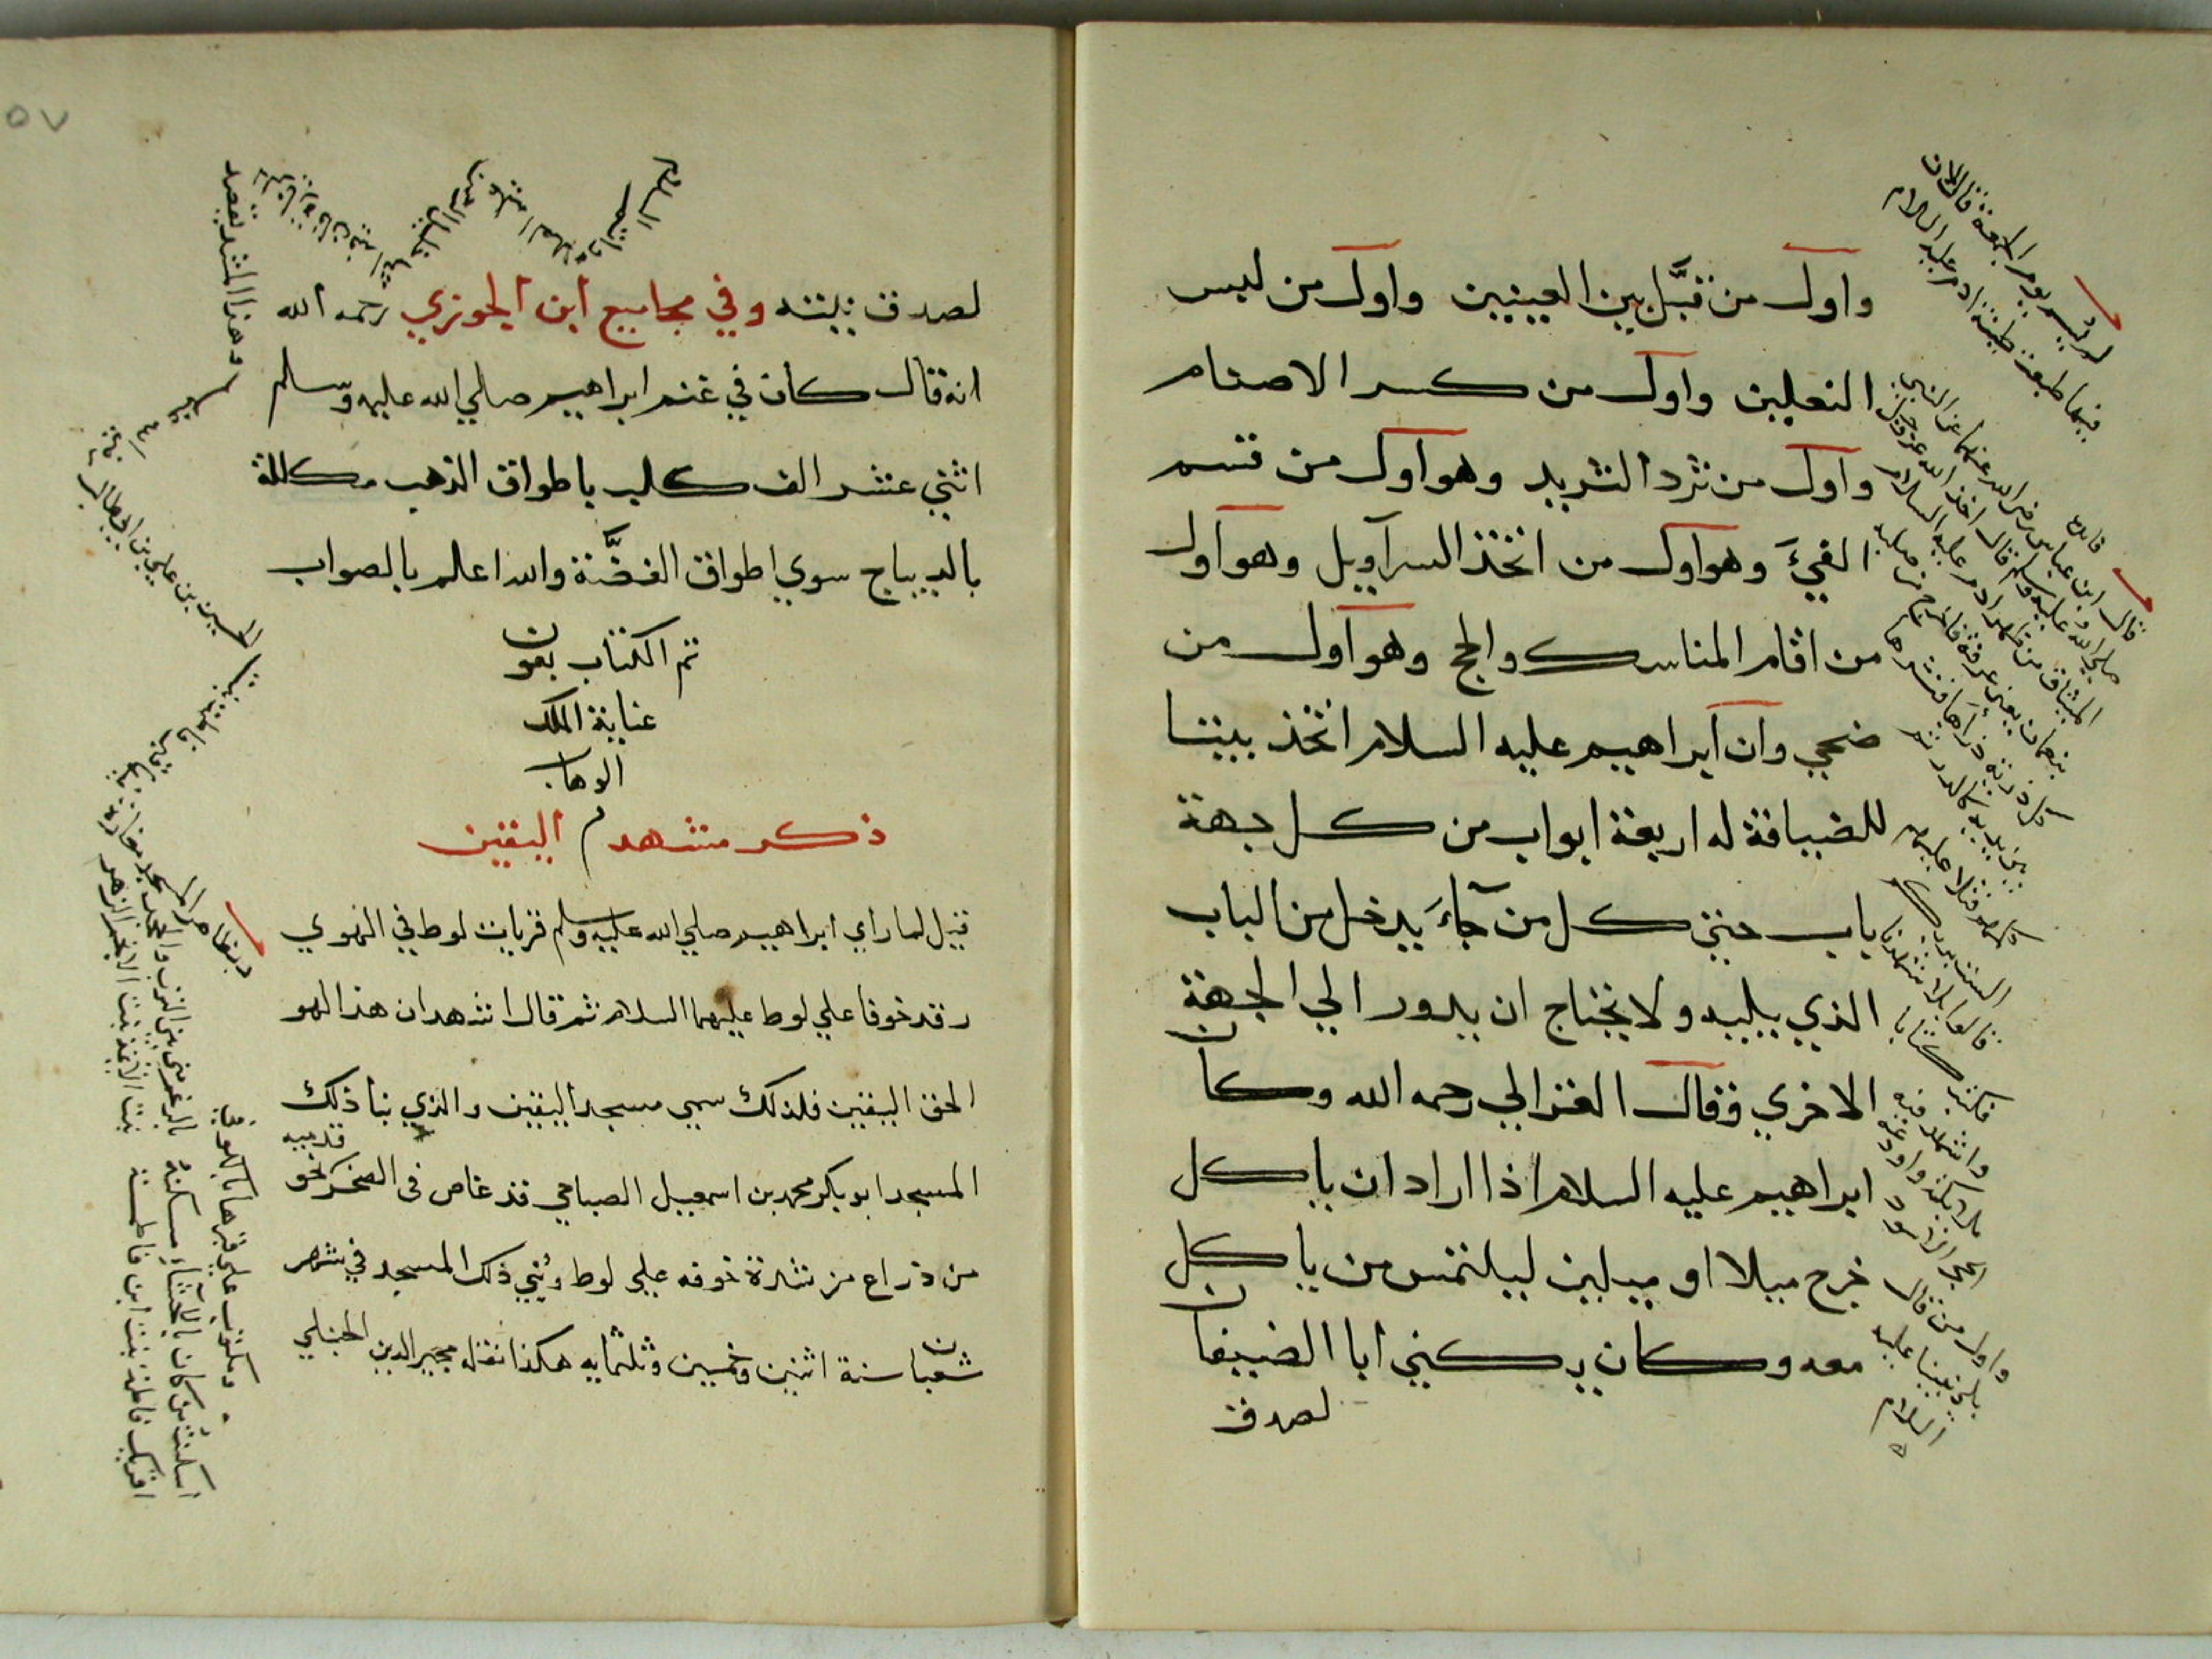 واول من قبَّل بين العينين واول من لبس
النعلين واول من كسر الاصنام
واول من ثرد الثريد وهو اول من قسم
الفيَ وهو اول من اتخذ السراويل وهو اول
من اقام المناسك والحج وهو اول من
ضحي وان ابراهيم عليه السلام اتخذ بيتا
للضيافة له اربعة ابواب من كل جهة
باب حتي كل من جآءَ يدخل من الباب
الذي يليه ولا يحتاج ان يدور الي الجهة
الاخري وقال الغزالي رحمه الله وكان
ابراهيم عليه السلام اذا اراد ان ياكل
خرج ميلا او ميلين ليلتمس من ياكل
معه وكان يكني ابا الضيفان
لصدق
لم سمي يوم الجمعة قال لان
فيها طبعت طينة ادم عليه السلام
فايده
قال ابن عباس رضي الله عنهما عن النبي
صلي الله عليه وسلم قال اخذ الله عز وجل
الميثاق من ظهر ادم عليه السلام
بنعمان يعني عرفة فاخرج من صلبه
كل ذرية ذراها فنثرها
بين يديه كالذر ثم
كلمهم قبلا عليهم
الست بربكم
قالوا بلا شهدنا
فكتب كتابا
واشهد فيه
ملايكته واودعه
الحجر الاسود
واول من قال
بلي نبينا عليه
السلام
٥٧
لصدق نيته وفي مجاميع ابن الجوزي رحمه الله
انه قال كان في غنم ابراهيم صلي الله عليه وسلم
اثني عشر الف كلب باطواق الذهب مكللة
بالديباج سوي اطواق الفضَّة والله اعلم بالصواب
تم الكتاب بعون
عناية الملك
الوهاب
ذكر مشهد اليقين
قيل لما راي ابراهيم صلي الله عليه وسلم قريات لوط في الهوي
رقد خوفا علي لوط عليهما السلام ثم قال اشهد ان هذا لهو
الحق اليقين فلذلك سمي مسجد اليقين والذي بنا ذلك
المسجد ابو بكر محمد بن اسمعيل الصباحي قد غاص في الصخر نحو
قدميه
من ذراع من شدة خوفه علي لوط وبُني ذلك المسجد في شهر
شعبان سنة اثنين وخمسين وثلثمايه هكذا نقله مجير الدين الحنبلي
وبظاهر المسجد مغارة بها قبر
فاطمة بنت
الحسين بن علي بن ابي طالب
ومكتوب علي قبرها بالكوفي
اسكنت من كان بالاحشاءِ مسكنهُ بالرغم مني بين الترب والحجر
افديك فاطمة بنت ابن فاطمة بنت الائمة بنت الانجم الزهر
وهذا المشهد يقصد